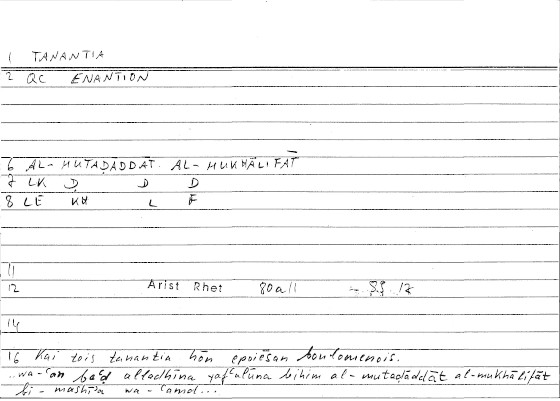 1 TANANTIA
2 QC ENANTION
6 AL-MUTAḌĀDDĀT. AL-MUKHĀLIFĀT
7 LK Ḍ D D
8 LE KH L F
11
12 Arist Rhet 80a11
14
16 Kai tois tanantia hōn epoiēsan boulomenois.
..wa-ʿan baʿḍ alladhīna yafʿalūna bihim al-mutaḍāddāt al-mukhālifāt
bi-mashīʾa wa-ʿamd...